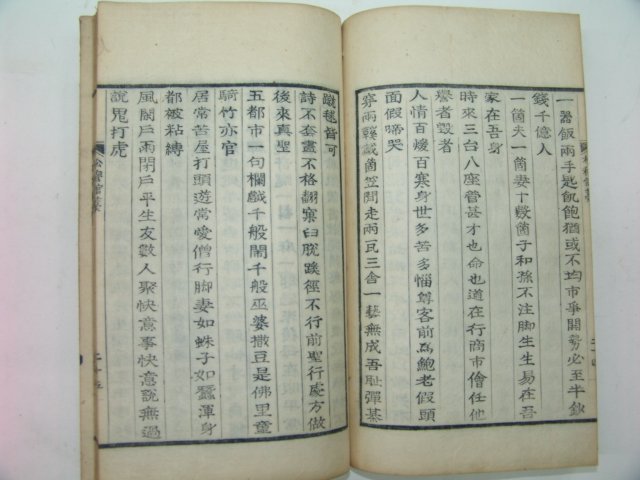 一器飯兩手匙飢飽猶或不均市爭鬪勢必至半鈔
錢千億人
一箇夫一箇妻十數箇子和孫不注脚生生易在吾
家在吾身
時來三台八座管甚才也命也道在行商市儈任他
譽者毀者
人情百煖百寒身世多苦多惱尊客前為鮑老假頭
面假啼哭
穿兩緉戴箇笠間走兩瓦三舍一藝無成吾耻彈棊
蹴毬皆可
詩不套盡不格翻窠臼脫蹊徑不行前聖行處方做
後來真聖
五都市一句欄戲千般鬧千般巫婆撒豆是佛里童
騎竹亦官
居常苦屋打頭遊常愛僧行脚妻如蛛子如蠶渾身
都被粘縛
風關戶雨閉戶平生友數人聚快意事快意說無過
說鬼打虎